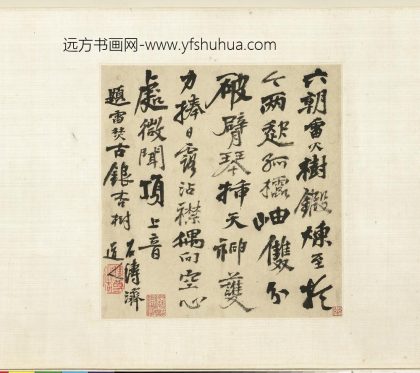 远方书画网-www.yfshuhua.com
六朝雷火樹鍛煉至於
今兩孤岫雙分
破臂琴挿天神護
力捧日露沾襟偶向空心
處微聞頂上音
題雷焚古銀杏樹
石濤濟
道人